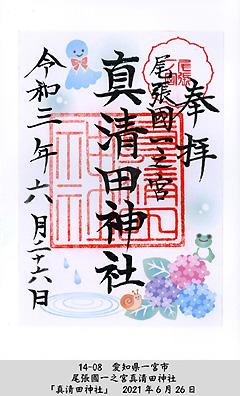 奉拝
尾張
尾張國一之宮
真清田神社
令和三年六月二十六日
14-08 愛知県一宮市
尾張國一之宮真清田神社
「真清田神社」 2021年6月26日